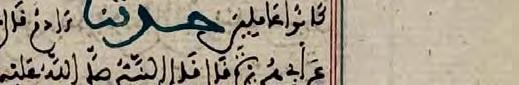 كانوا عاملين حدثنا ءادم قال
عن أبي هريرة قال قال النبي صلى الله عليه